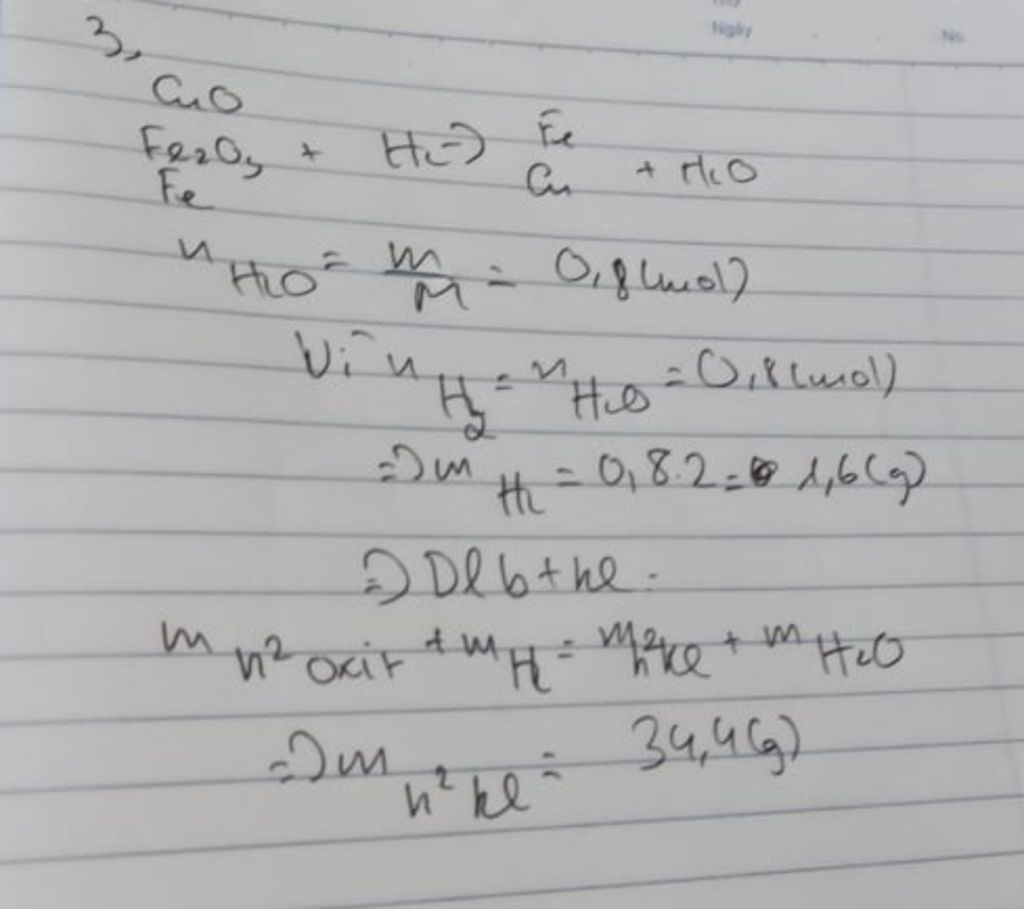 Ngày No
3,
CuO
Fe₂O₃ + H₂ → Fe
Fe Cu + H₂O
n H₂O = m/M = 0,8 (mol)
Vì n H₂ = n H₂O = 0,8 (mol)
=> m H₂ = 0,8.2 = 1,6 (g)
=> Dlb+kl.
m h² oxit + m H₂ = m h² kl + m H₂O
=> m h² kl = 34,4 (g)